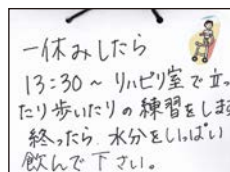 一休みしたら
13:30～ リハビリ室で立っ
たり歩いたりの練習をしま
終ったら、水分をいっぱい
飲んで下さい。